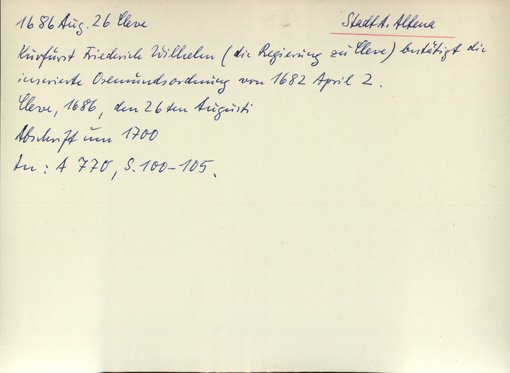 1686 Aug. 26 Cleve Stadt A. Altena
Kurfürst Friedrich Wilhelm (die Regierung zu Cleve) bestätigt die
inserierte Osemundsordnung von 1682 April 2.
Cleve, 1686, den 26ten Augusti
Abschrift um 1700
In: A 770, S. 100-105.